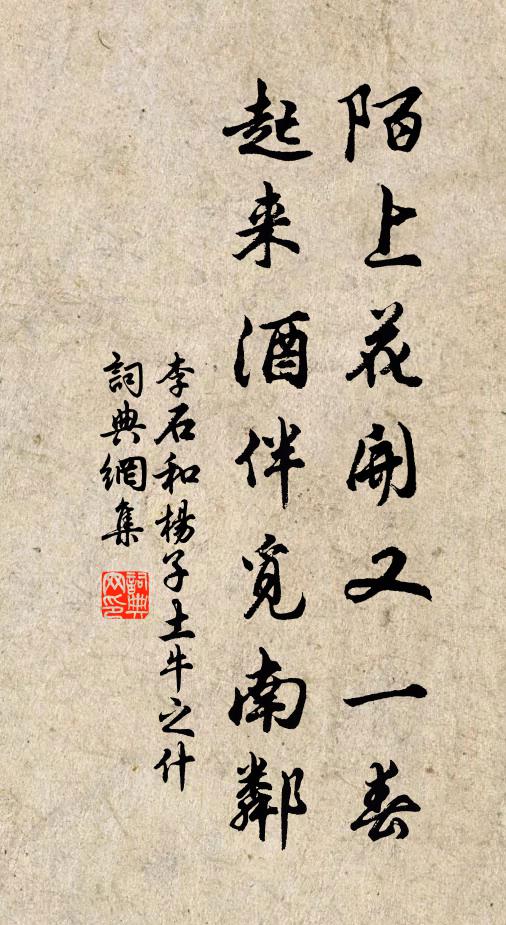 陌上花開又一春
起来酒伴覓南鄰
李石和楊子土牛之什
詞典網集
詞典网印